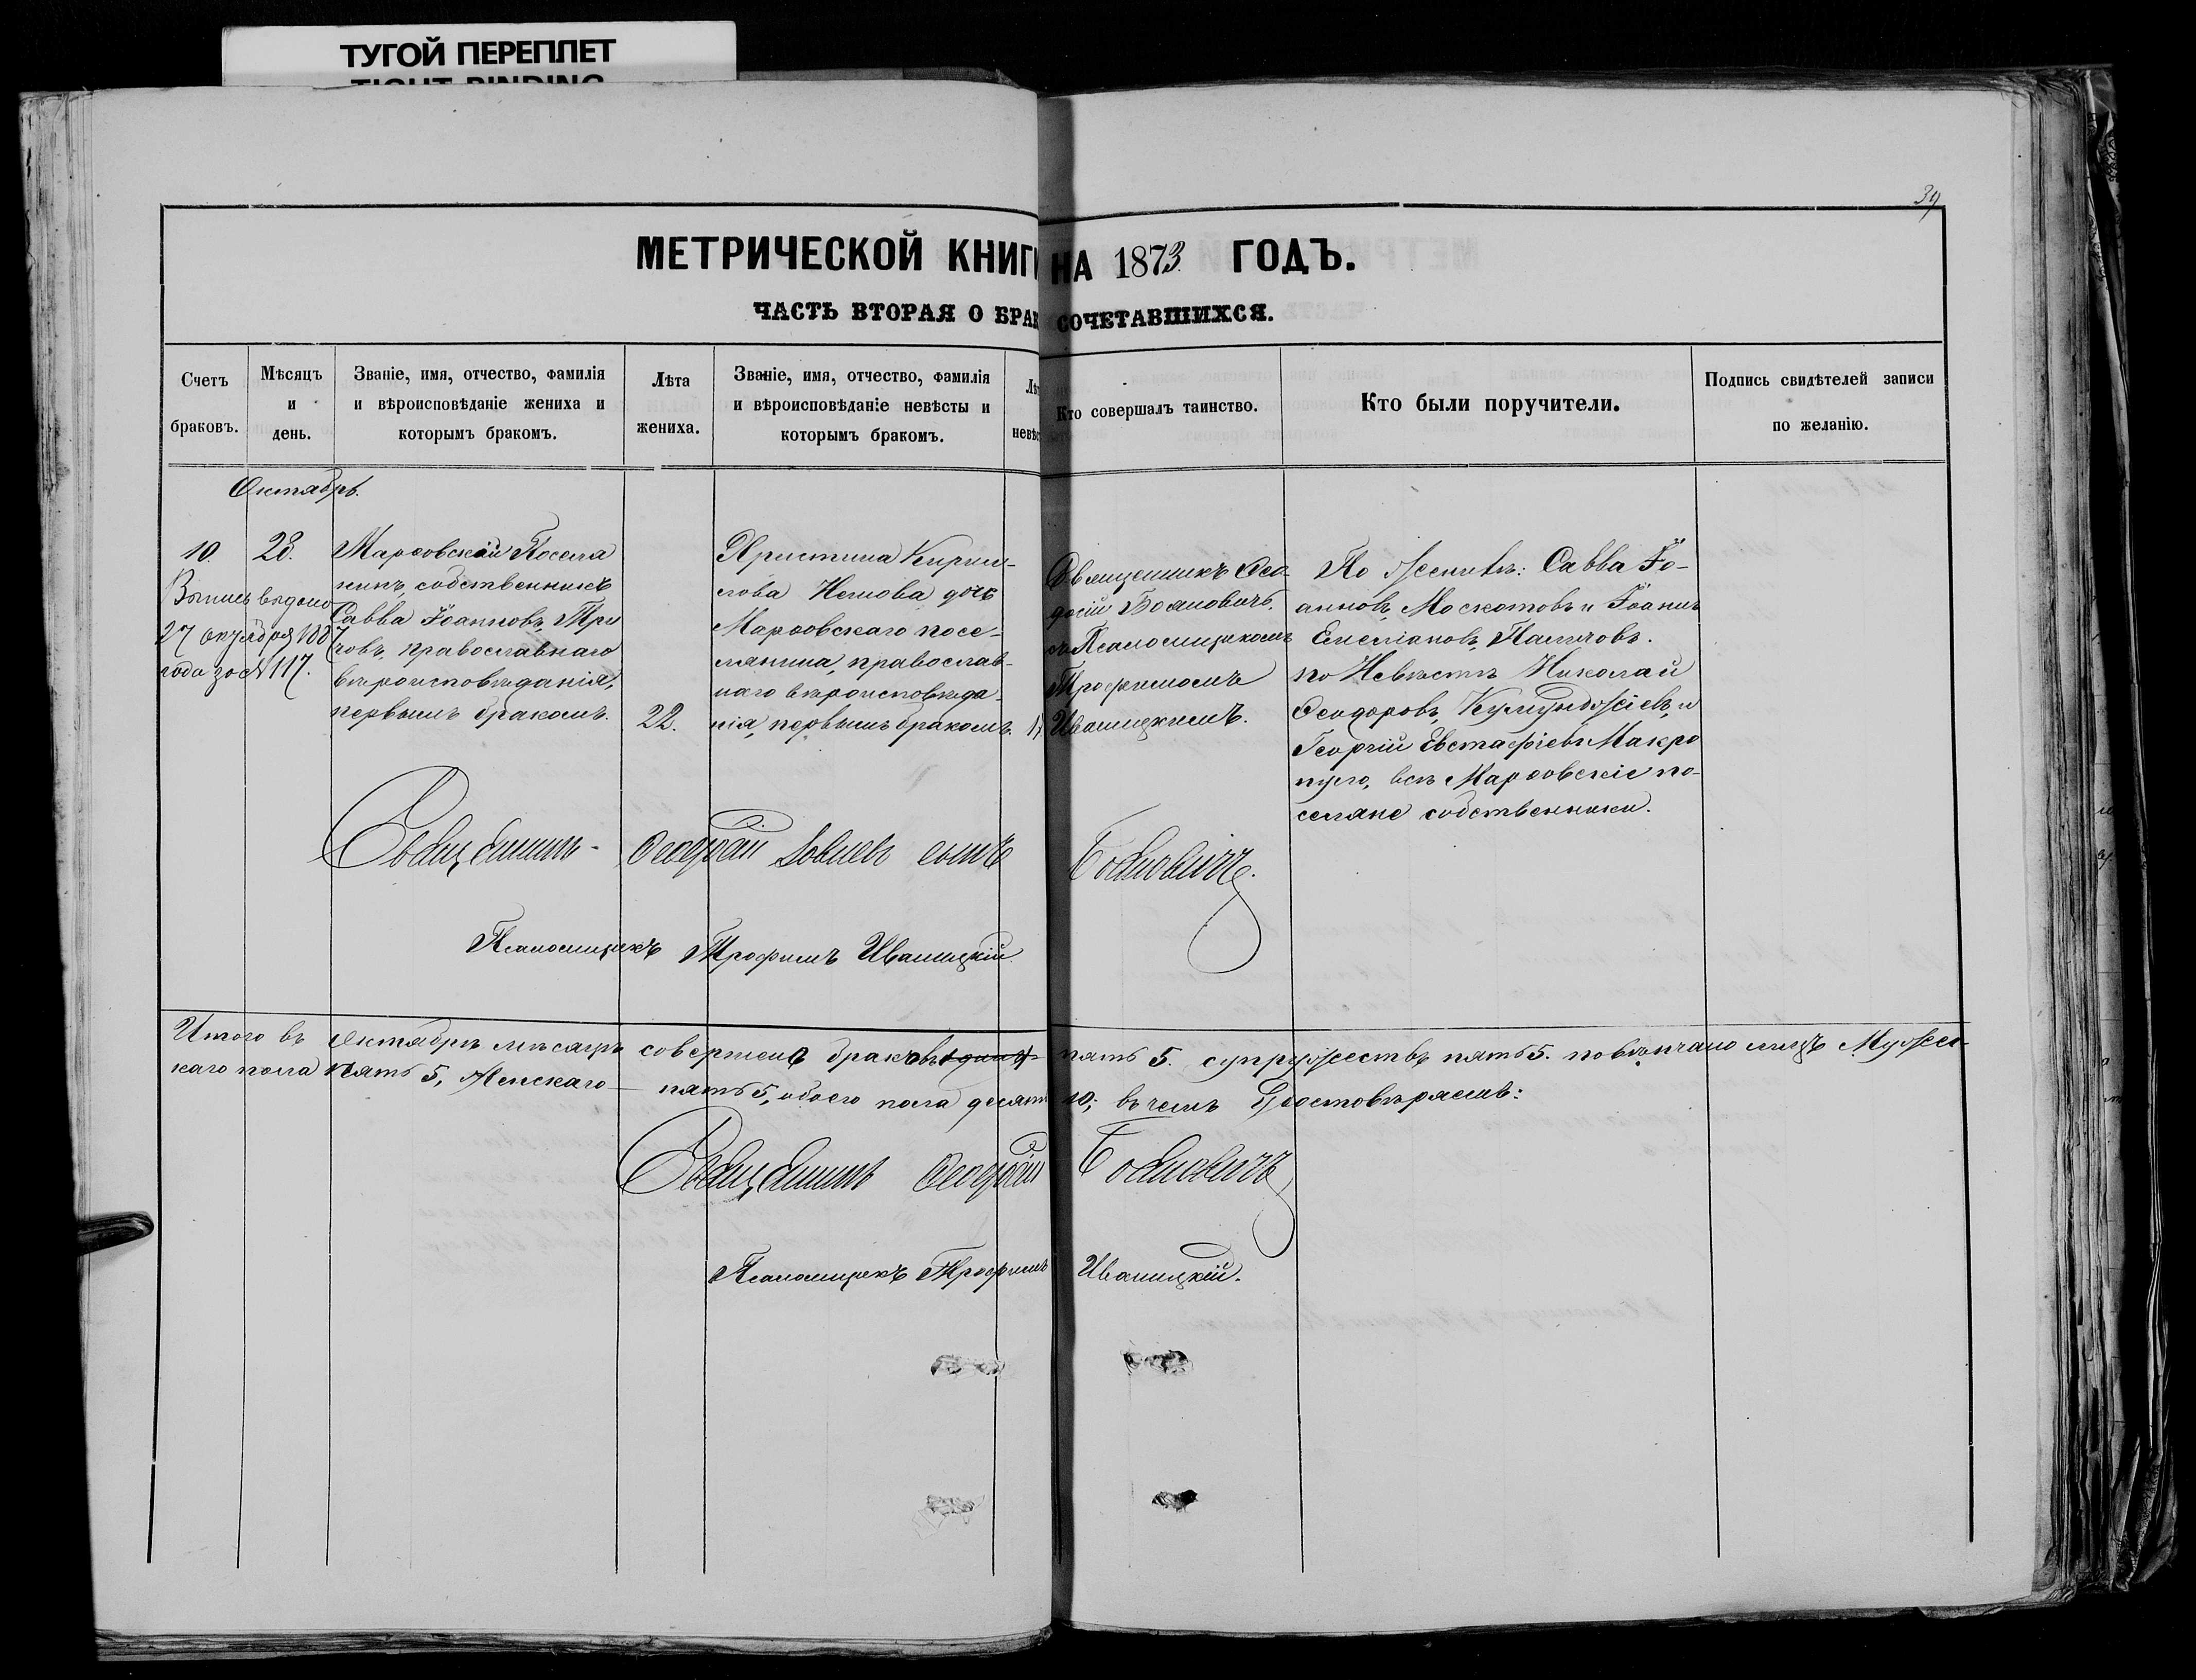 ТУГОЙ ПЕРЕПЛЕТ
TIGHT BINDING
39
МЕТРИЧЕСКОЙ КНИГИ НА 1873 ГОДЪ.
ЧАСТЬ ВТОРАЯ О БРАКОСОЧЕТАВШИХСЯ.
Счетъ
браковъ.
Мѣсяцъ
и
день.
Званіе, имя, отчество, фамилія
и вѣроисповѣданіе жениха и
которымъ бракомъ.
Лѣта
жениха.
Званіе, имя, отчество, фамилія
и вѣроисповѣданіе невѣсты и
которымъ бракомъ.
Лѣ
невѣс
Кто совершалъ таинство.
Кто были поручители.
Подпись свидѣтелей записи
по желанію.
Октябрь.
10.
Выпись выдана
27 октября 1887
года за № 117.
28.
Марѳовскій Поселя
нинъ, собственникъ
Савва Іоанновъ, Три
човъ, православнаго
вѣроисповѣданія,
первымъ бракомъ.
22.
Христина Кирил-
лова Немова дочь
Марѳовскаго посе-
лянина, православ-
наго вѣроисповѣда-
нія, первымъ бракомъ.
Священникъ Ѳео-
досій Бояновичъ.
съ Псаломщикомъ
Трофимомъ
Иваницкимъ.
По Женихѣ: Савва Іо-
анновъ, Москотовъ и Іоаннъ
Емеліановъ, Паличовъ.
по Невѣстѣ Николай
Ѳеодоровъ, Кумунджіевъ, и
Георгій Евстафіевъ Макро
пуло, всѣ Марѳовскіе по-
селяне собственники.
Священникъ Ѳеодосій сынъ Бояновичъ.
Псаломщикъ Трофимъ Иваницкій.
Итого въ Октябрѣ мѣсяцѣ совершено браковъ пять 5. супружествъ пять 5. повѣнчано лицъ Мужес-
каго пола Пять 5, Женскаго пять 5, обоего пола десять 10; въ чемъ Удостовѣряемъ:
Священникъ Ѳеодосій Бояновичъ
Псаломщикъ Трофимъ Иваницкій.